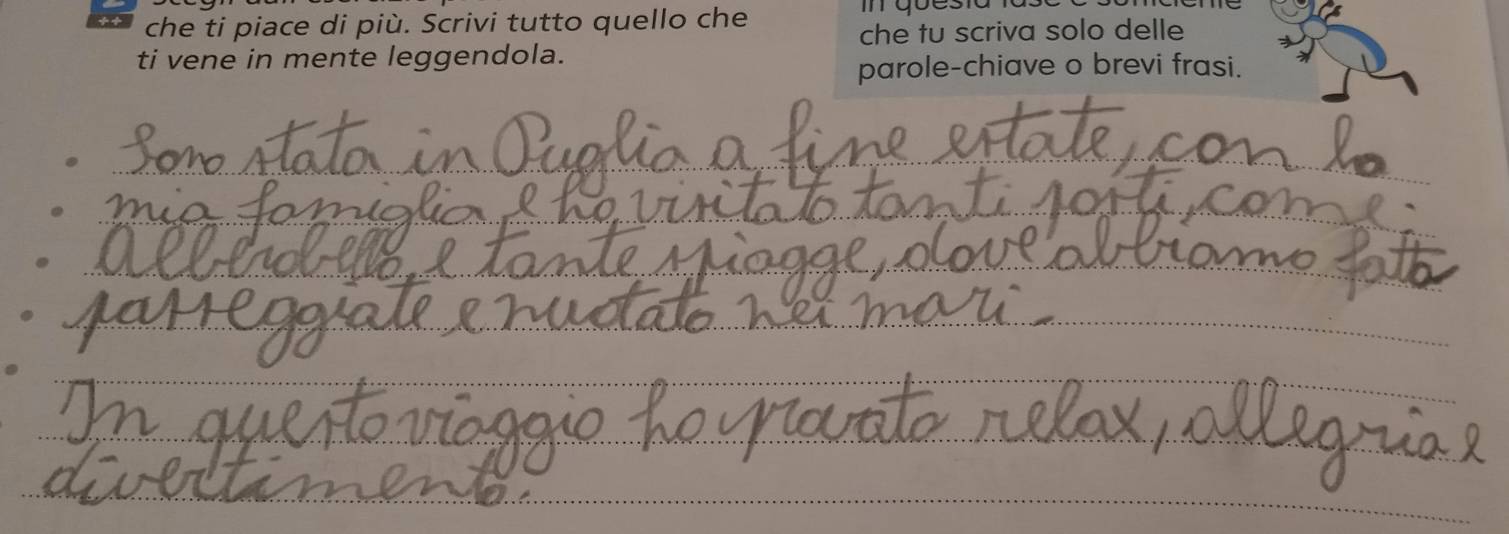 che ti piace di più. Scrivi tutto quello che
ti vene in mente leggendola.
che tu scriva solo delle
parole-chiave o brevi frasi.
Sono stata in Puglia a fine estate, con la
mia famiglia e ho visitato tanti posti, come:
Alberobello, e tante spiagge, dove abbiamo fatto
passeggiate e nuotato nei mari.
In questo viaggio ho provato relax, allegria e
divertimento.